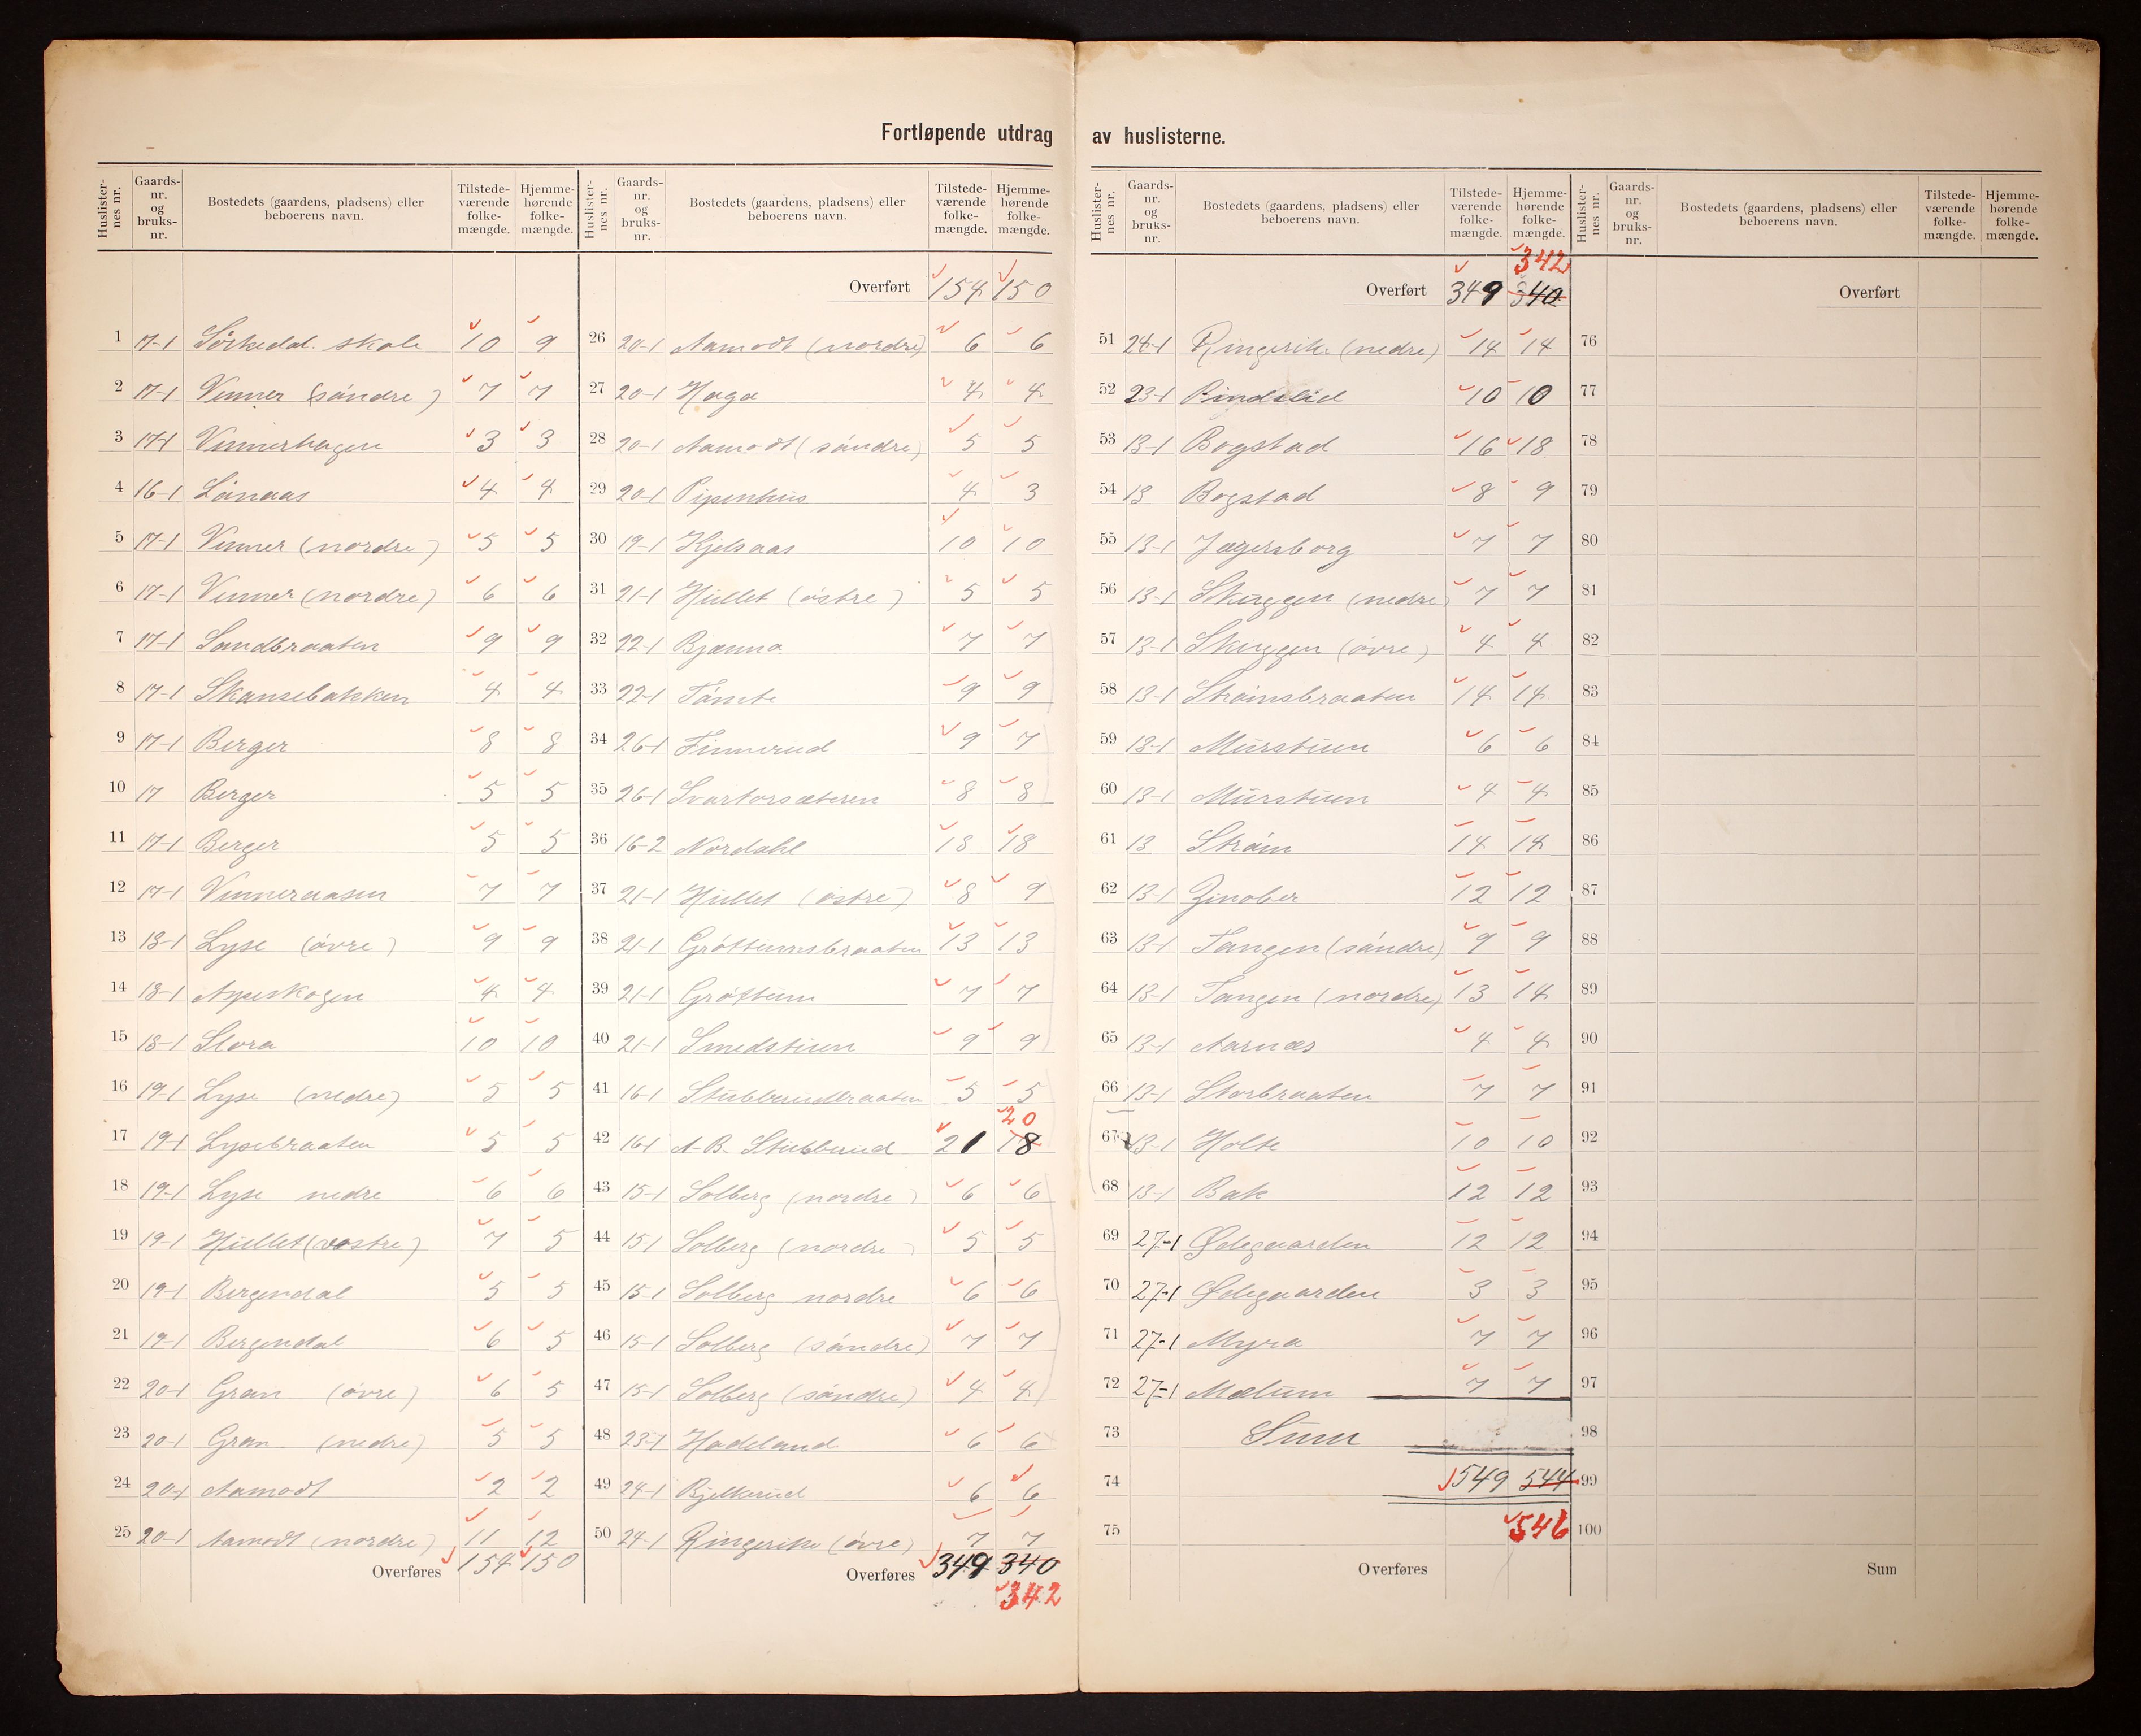 Fortløpende utdrag av huslisterne.
Huslister-nes nr. Gaards-nr. og bruks-nr. Bostedets (gaardens, pladsens) eller beboerens navn. Tilstede-værende folke-mængde. Hjemme-hørende folke-mængde.
1 17-1 Sörkedal. skole 10 9
2 17-1 Vinner (söndre) 7 7
3 17-1 Vinnerhagen 3 3
4 16-1 Lönaas 4 4
5 17-1 Vinner (nordre) 5 5
6 17-1 Vinner (nordre) 6 6
7 17-1 Sandbraaten 9 9
8 17-1 Skansebakken 4 4
9 17-1 Berger 8 8
10 17 Berger 5 5
11 17-1 Berger 5 5
12 17-1 Vinneraasen 7 7
13 18-1 Lyse (övre) 9 9
14 18-1 Aspeskogen 4 4
15 18-1 Slora 10 10
16 19-1 Lyse (nedre) 5 5
17 19-1 Lysebraaten 5 5
18 19-1 Lyse nedre 6 6
19 19-1 Hullet (vestre) 7 5
20 19-1 Bergendal 5 5
21 19-1 Bergendal 6 5
22 20-1 Gran (övre) 6 5
23 20-1 Gran (nedre) 5 5
24 20-1 Aamodt 2 2
25 20-1 Aamodt (nordre) 11 12
Overføres 154 150
Huslister-nes nr. Gaards-nr. og bruks-nr. Bostedets (gaardens, pladsens) eller beboerens navn. Tilstede-værende folke-mængde. Hjemme-hørende folke-mængde.
Overført 154 150
26 20-1 Aamodt (nordre) 6 6
27 20-1 Haga 4 4
28 20-1 Aamodt (söndre) 5 5
29 20-1 Pipenhus 4 3
30 19-1 Kjelsaas 10 10
31 21-1 Hullet (östre) 5 5
32 22-1 Bjønna 7 7
33 22-1 Tömte 9 9
34 26-1 Finnerud 9 7
35 26-1 Svartorsæteren 8 8
36 16-2 Nordahl 18 18
37 21-1 Hullet (östre) 8 9
38 21-1 Gröttumsbraaten 13 13
39 21-1 Gröttum 7 7
40 21-1 Smedstuen 9 9
41 16-1 Stubberudbraaten 5 5
20
42 16-1 A-B. Stubberud 21 18
43 15-1 Solberg (nordre) 6 6
44 15-1 Solberg (nordre) 5 5
45 15-1 Solberg nordre 6 6
46 15-1 Solberg (söndre) 7 7
47 15-1 Solberg (söndre) 4 4
48 23-1 Hadeland 6 6
49 24-1 Bjelkerud 6 6
50 24-1 Ringerike (övre) 7 7
Overføres 349 340
342
Huslister-nes nr. Gaards-nr. og bruks-nr. Bostedets (gaardens, pladsens) eller beboerens navn. Tilstede-værende folke-mængde. Hjemme-hørende folke-mængde.
342
Overført 349 340
51 24-1 Ringerike (nedre) 14 14
52 23-1 Pindslid 10 10
53 13-1 Bogstad 16 18
54 13 Bogstad 8 9
55 13-1 Jægersborg 7 7
56 13-1 Skuggen (nedre) 7 7
57 13-1 Skuggen (övre) 4 4
58 13-1 Strömsbraaten 14 14
59 13-1 Murstuen 6 6
60 13-1 Murstuen 4 4
61 13 Ström 14 14
62 13-1 Zinober 12 12
63 13-1 Tangen (söndre) 9 9
64 13-1 Tangen (nordre) 13 14
65 13-1 Aarnæs 4 4
66 13-1 Storbraaten 7 7
67 13-1 Holte 10 10
68 13-1 Bak 12 12
69 27-1 Ødegaarden 12 12
70 27-1 Ødegaarden 3 3
71 27-1 Myra 7 7
72 27-1 Mælum 7 7
73 Sum
74 549 544
75 546
Overføres
Huslister-nes nr. Gaards-nr. og bruks-nr. Bostedets (gaardens, pladsens) eller beboerens navn. Tilstede-værende folke-mængde. Hjemme-hørende folke-mængde.
Overført
76
77
78
79
80
81
82
83
84
85
86
87
88
89
90
91
92
93
94
95
96
97
98
99
100
Sum